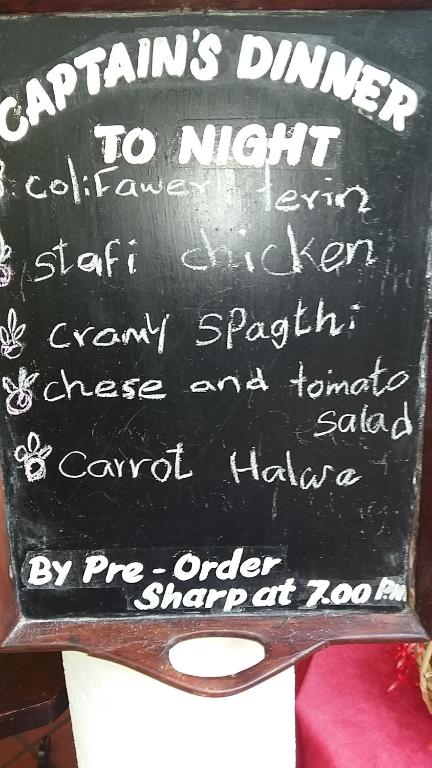 CAPTAIN'S DINNER
TO NIGHT
colifawer terin
stafi chicken
cramy spagthi
chese and tomato
salad
Carrot Halwa
By Pre-Order
Sharp at 7.00 PM